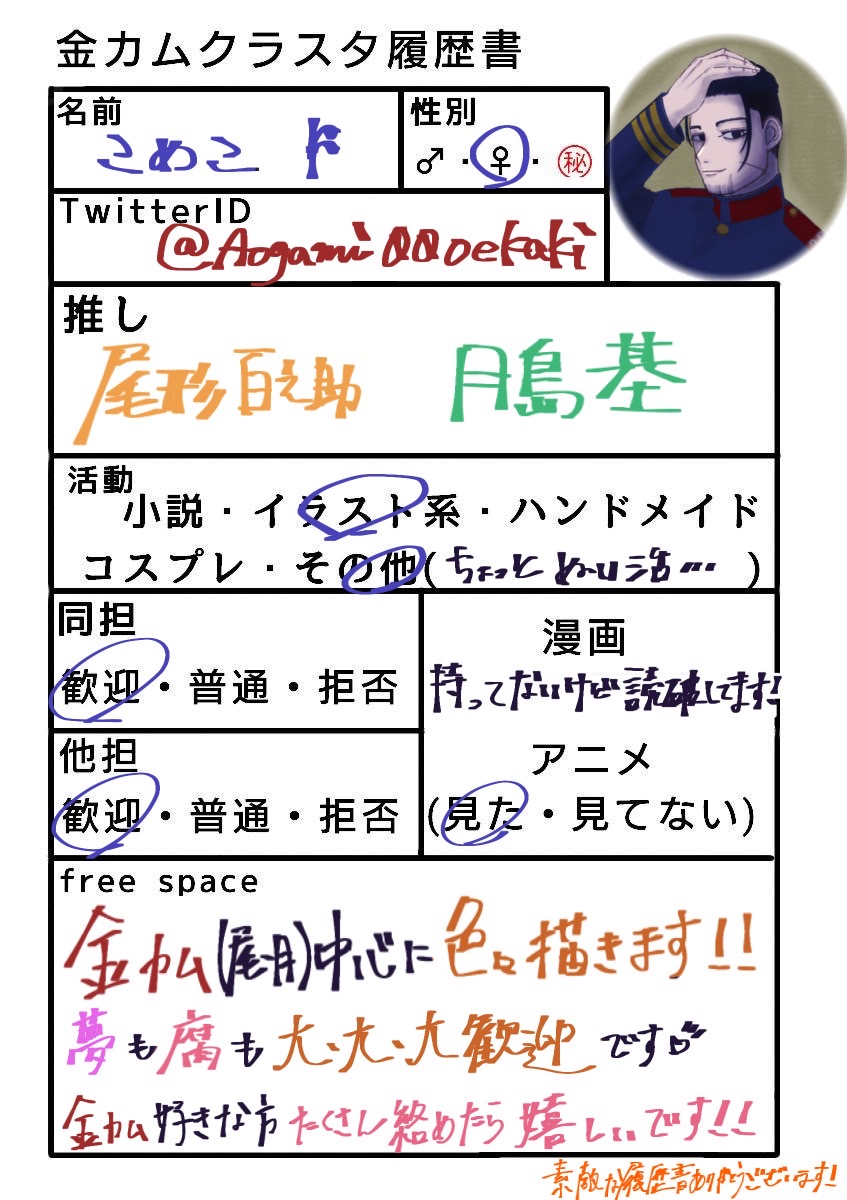 金カムクラスタ履歴書
名前
こめこ ド
性別
♂・♀・㊙
TwitterID
@Aogami00oekaki
推し
尾形百之助 月島基
活動
小説・イラスト系・ハンドメイド
コスプレ・その他(ちょっとぬい活… )
同担
歓迎・普通・拒否
漫画
持ってないけど読破してます!
他担
歓迎・普通・拒否
アニメ
(見た・見てない)
free space
金カム(尾月)中心に色々描きます!!
夢も腐も大、大、大歓迎です♡
金カム好きな方たくさん絡めたら嬉しいです!!
素敵な履歴書ありがとうございます!